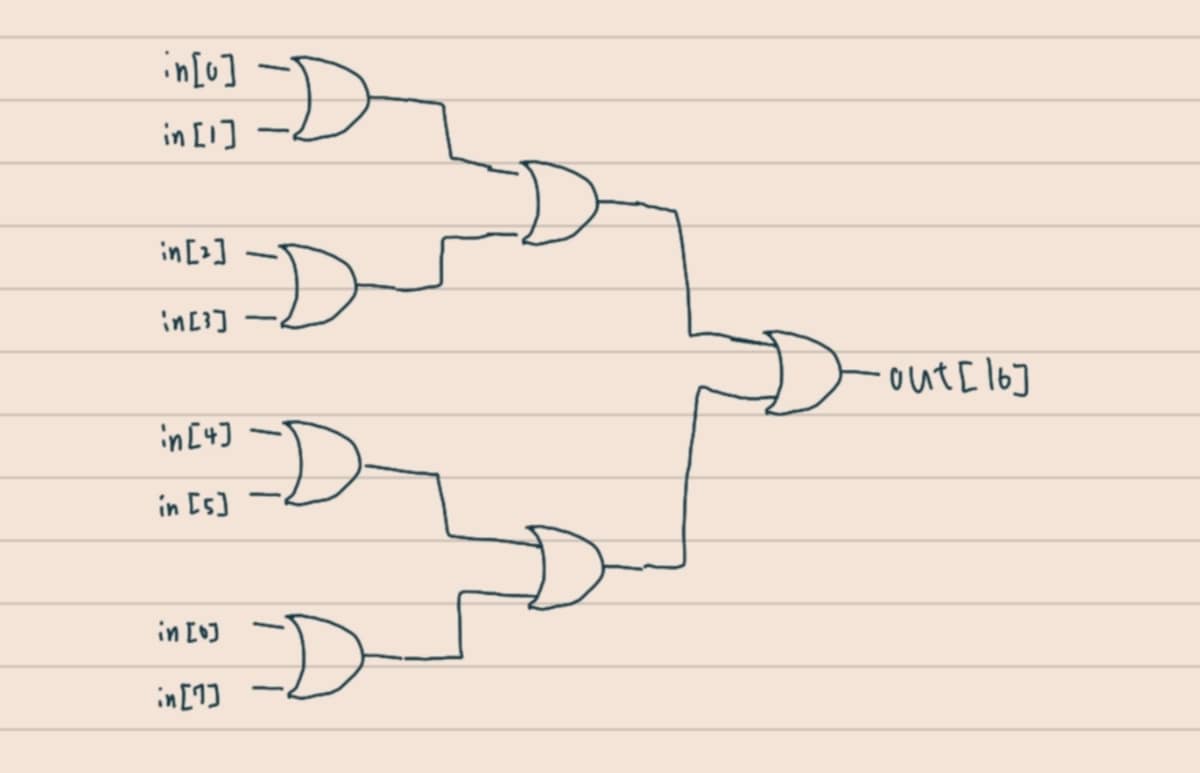 in[0]
in[1]
in[2]
in[3]
in[4]
in[5]
in[6]
in[7]
out[16]